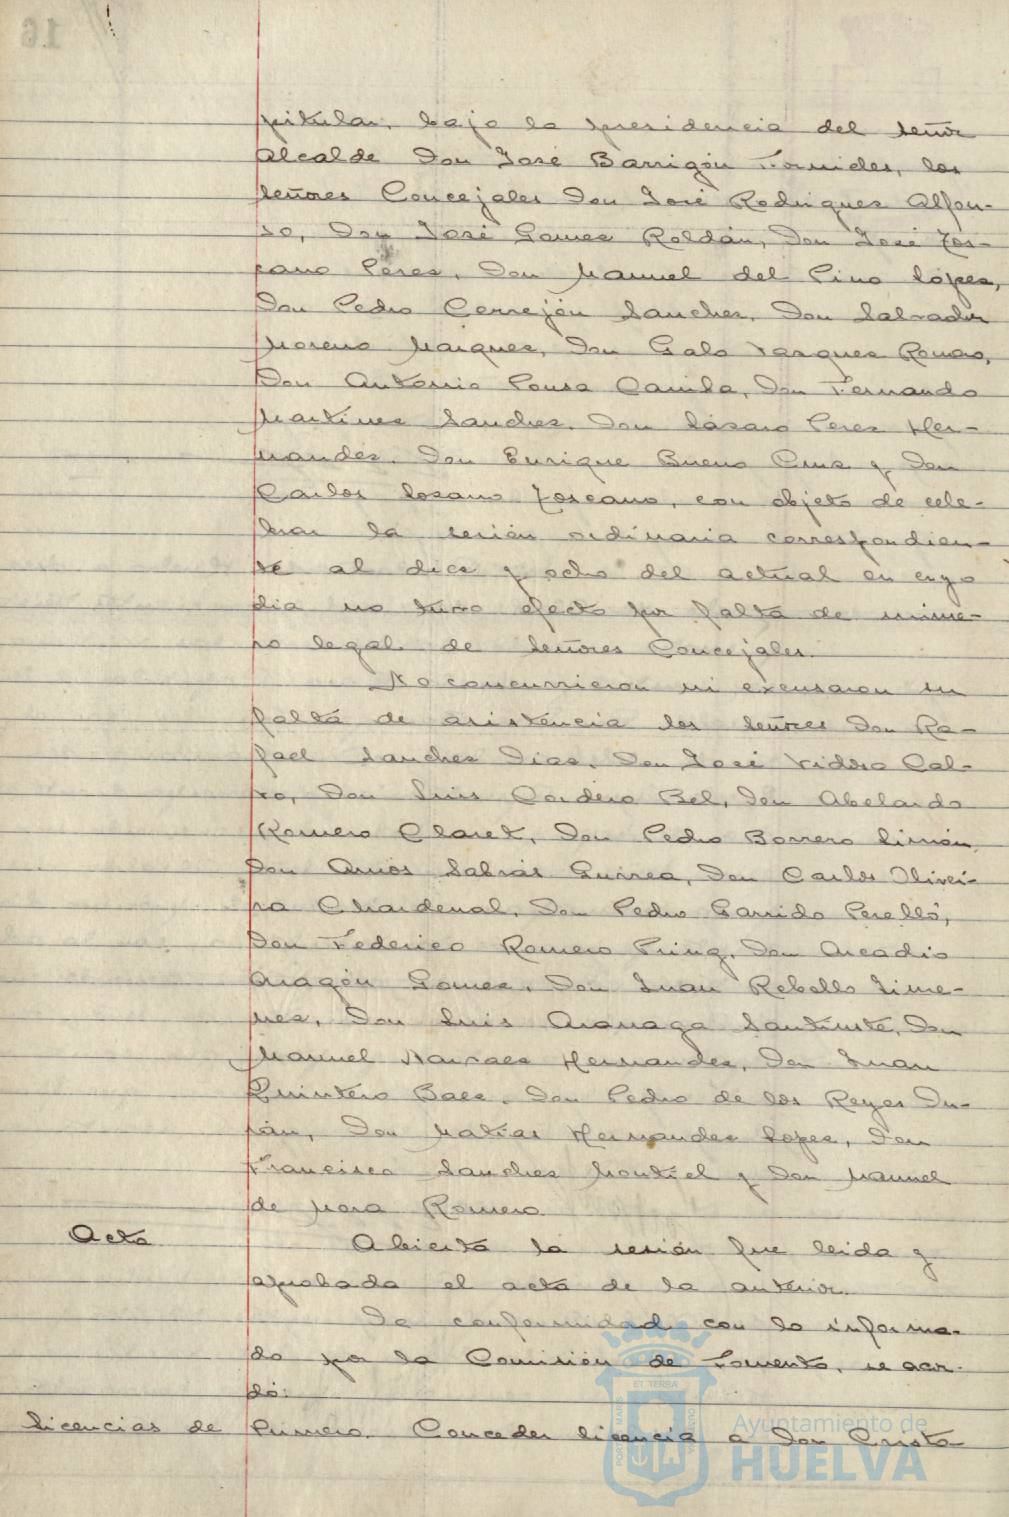 16
pitular, bajo la presidencia del señor
Alcalde Don José Barrigón Fornieles, los
señores Concejales Don José Rodriguez Alfon-
so, Don José Gomez Roldán, Don José Tos-
cano Perez, Don Manuel del Pino López,
Don Pedro Cerrejón Sanchez, Don Salvador
Moreno Marquez, Don Galo Vazquez Romero,
Don Antonio Pousa Camila, Don Fernando
Martinez Sanchez, Don Lázaro Perez Her-
nandez, Don Enrique Bueno Cruz y Don
Carlos Lozano Toscano, con objeto de cele-
brar la sesión ordinaria correspondien-
te al diez y ocho del actual en cuyo
dia no tuvo efecto por falta de núme-
ro legal de señores Concejales.
No concurrieron ni excusaron su
falta de asistencia los señores Don Ra-
fael Sanchez Diaz, Don José Vidosa Cal-
vo, Don Luis Cordero Bel, Don Abelardo
Romero Claret, Don Pedro Borrero Limón,
Don Amós Sabrás Gurrea, Don Carlos Olivei-
ra Chardenal, Don Pedro Garrido Perelló,
Don Federico Romero Pring, Don Arcadio
Aragón Gomez, Don Juan Rebollo Jime-
nez, Don Luis Aranaga Santiuste, Don
Manuel Narvaez Hernandez, Don Juan
Quintero Baez, Don Pedro de los Reyes Du-
rán, Don Matias Hernandez Lopez, Don
Francisco Sanchez Montiel y Don Manuel
de Mora Romero.
Acta
Abierta la sesión fue leida y
aprobada el acta de la anterior.
De conformidad con lo informa-
do por la Comisión de Fomento, se acor-
dó:
Licencias de
Primero. Conceder licencia a Don Cristo-
ET TERRA
PORTUS MARIS
Ayuntamiento de
HUELVA